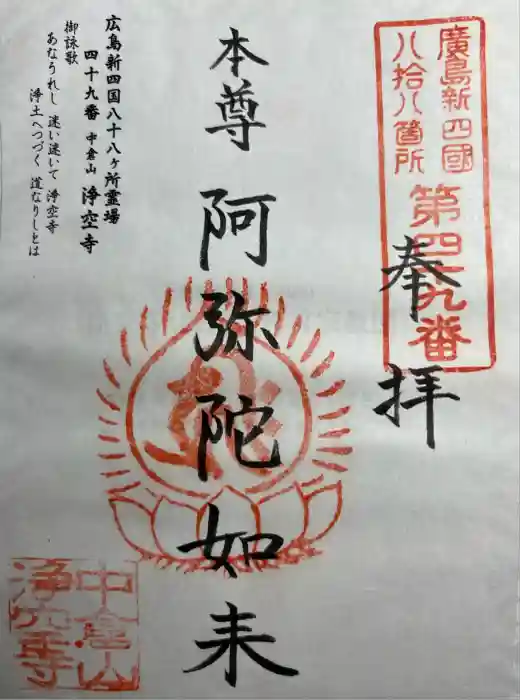 廣島新四國
八拾八箇所
第四十九番
奉拝
本尊
阿弥陀如来
広島新四国八十八ヶ所霊場
四十九番 中倉山 浄空寺
御詠歌
あなうれし 迷い迷いて 浄空寺
浄土へつづく 道なりしとは
中倉山
浄空寺